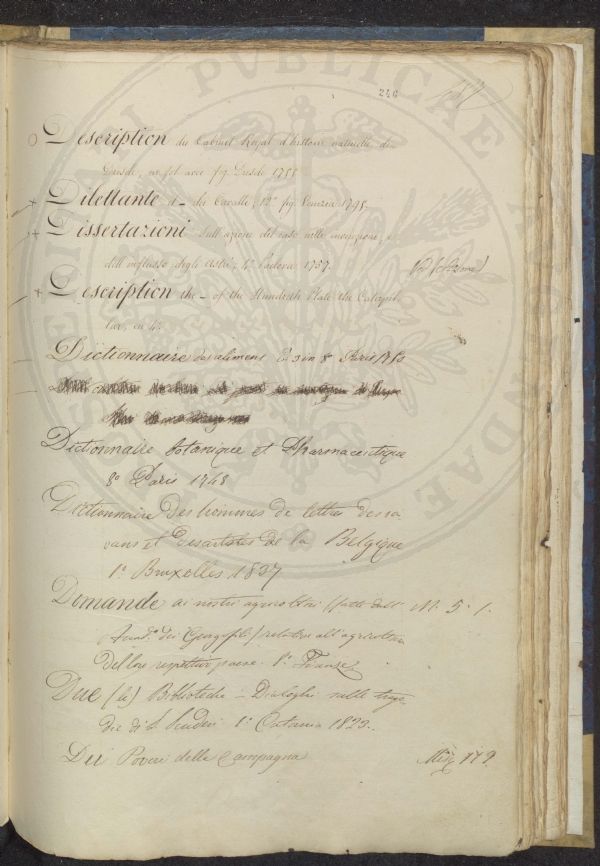 246
Description du Cabinet Royal d'histoire naturelle de
Dresde, in fol. avec fig. Dresde 1755
Dilettante il – dei Cavalli, 12° fig. Venezia 1795.
Dissertazioni sull'azione del caso nelle invenzioni, e
dell'influsso degli astri, 4° Padova 1757.
Description the – of the Hundredth Plate the Catapul-
tae, en 4°
Dictionnaire des alimens en 3 in 8° Paris 1750
Dictionnaire botanique et Pharmaceutique
8° Paris 1748
Dictionnaire des hommes de lettres des sa
vans et des artistes de la Belgique
8° Bruxelles 1837
Domande ai nostri agricoltori (fatte dall' M. 5. 1.
Accad.a dei Georgofili) relative all'agricoltura
del loro rispettivo paese. 8° Firenze
Due (le) Biblioteche – Dialoghi sulle trage
die di S. Scuderi 8° Catania 1823.
Dei Poveri della Campagna Misc 179